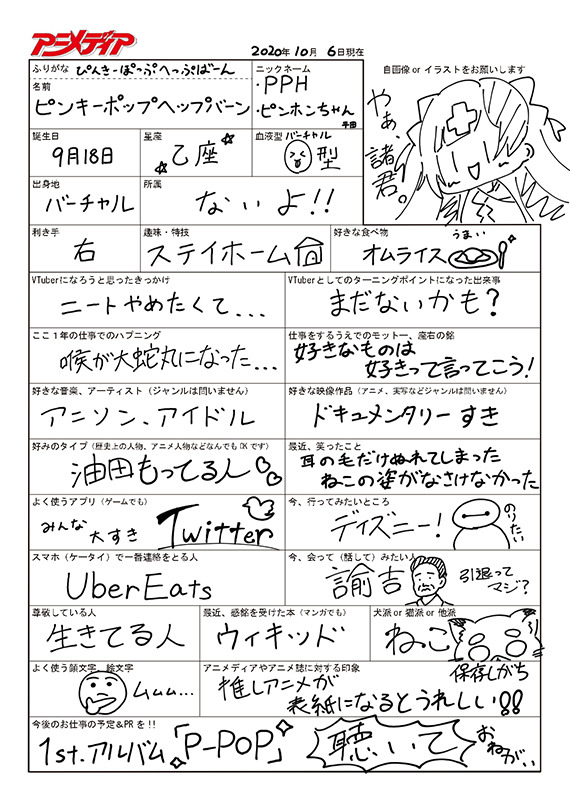 アニメディア
2020年 10月 6日現在
ふりがな ぴんきーぽっぷへっぷばーん
名前
ピンキーポップヘップバーン
ニックネーム
・PPH
・ピンホンちゃん
自画像 or イラストをお願いします
やぁ、諸君。
誕生日
9月18日
星座
乙座
血液型 バーチャル
型
出身地
バーチャル
所属
ないよ!!
利き手
右
趣味・特技
ステイホーム
好きな食べ物
うまい
オムライス
VTuberになろうと思ったきっかけ
ニートやめたくて...
VTuberとしてのターニングポイントになった出来事
まだないかも?
ここ1年の仕事でのハプニング
喉が大蛇丸になった...
仕事をするうえでのモットー、座右の銘
好きなものは
好きって言ってこう!
好きな音楽、アーティスト(ジャンルは問いません)
アニソン、アイドル
好きな映像作品(アニメ、実写などジャンルは問いません)
ドキュメンタリーすき
好みのタイプ(歴史上の人物、アニメ人物などなんでもOKです)
油田もってる人
最近、笑ったこと
耳の毛だけぬれてしまった
ねこの姿がなさけなかった
よく使うアプリ(ゲームでも)
みんな
大すき
Twitter
今、行ってみたいところ
ディズニー!
のりたい
スマホ(ケータイ)で一番連絡をとる人
UberEats
今、会って(話して)みたい人
諭吉
引退って
マジ?
尊敬している人
生きてる人
最近、感銘を受けた本(マンガでも)
ウィキッド
犬派 or 猫派 or 他派
ねこ
よく使う顔文字、絵文字
ムムム...
保存しがち
アニメディアやアニメ誌に対する印象
推しアニメが
表紙になるとうれしい!!
今後のお仕事の予定&PRを!!
1st.アルバム「P-POP」
聴いて
おねがい